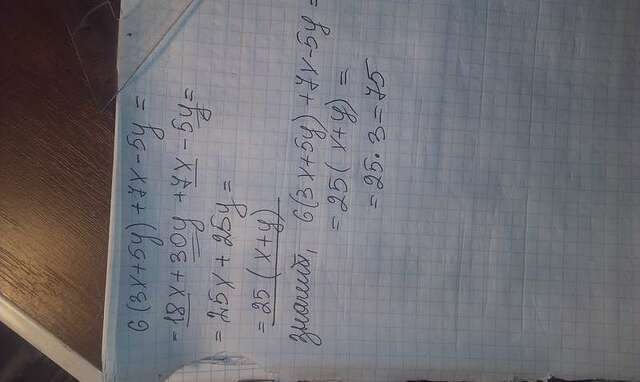 6(3x+5y)+7x-5y=
=18x+30y+7x-5y=
=25x+25y=
=25(x+y)
значит, 6(3x+5y)+7x-5y=
=25(x+y)=
=25·3=75